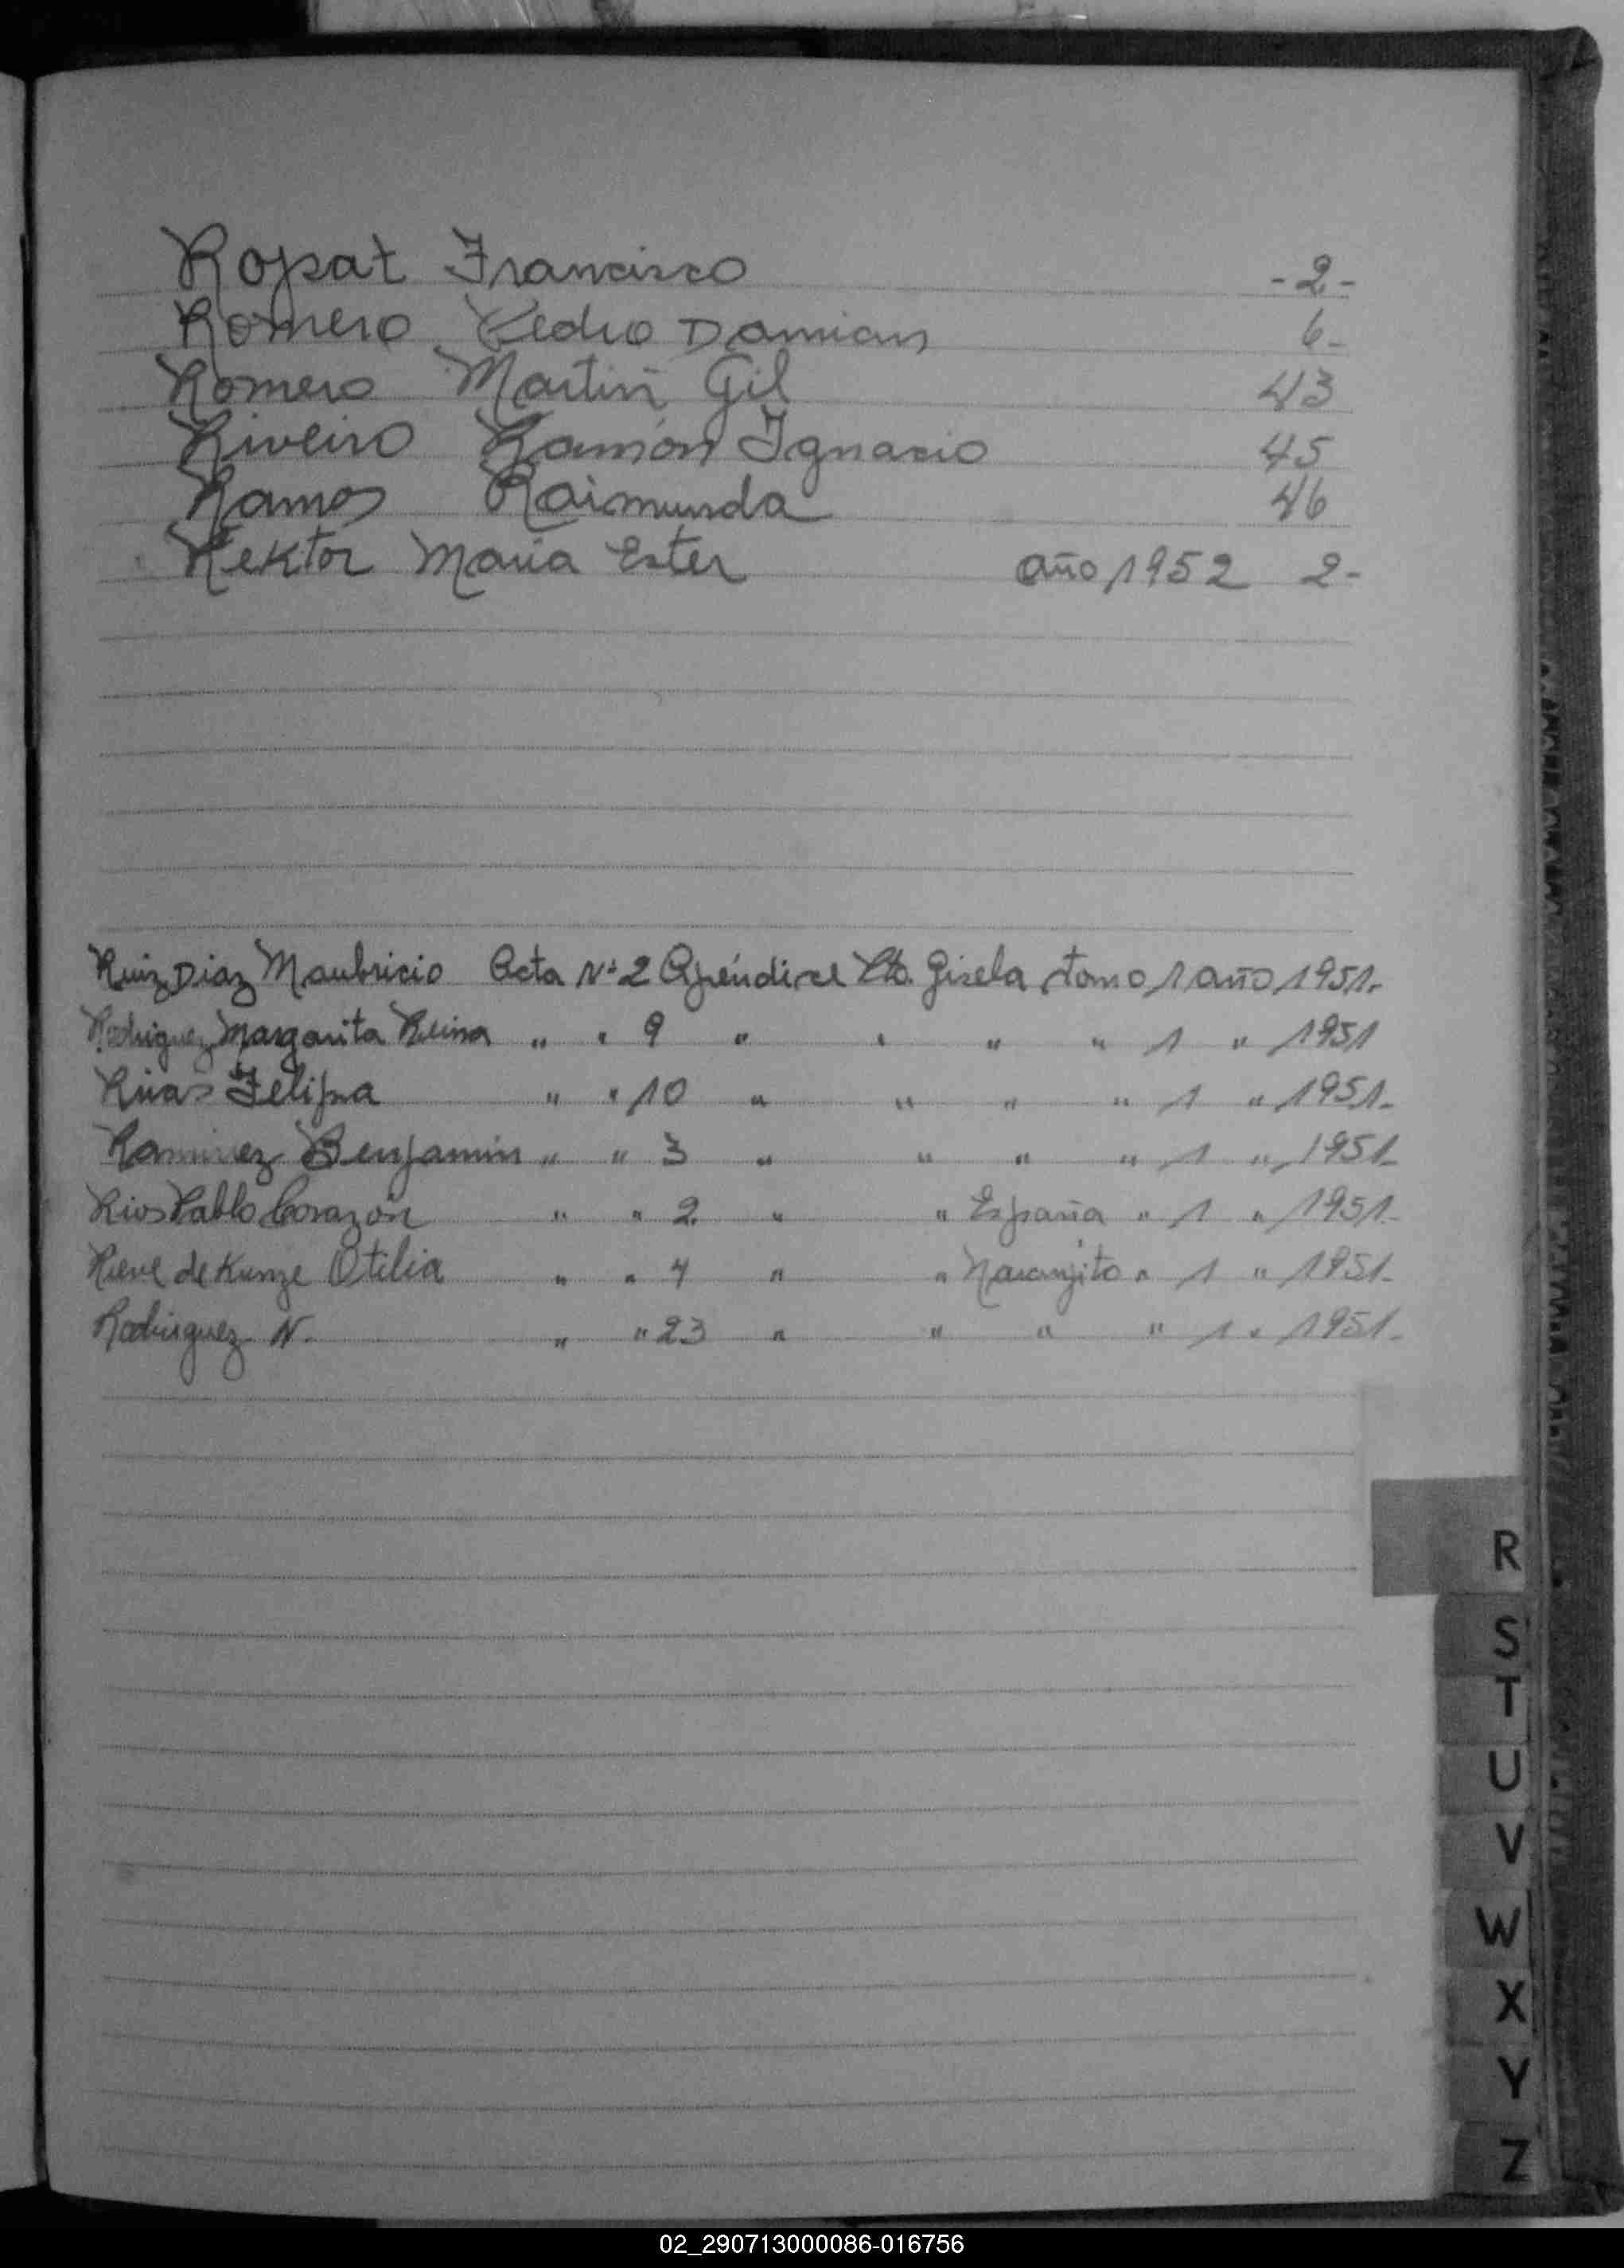 Ropat Francisco -2-
Romero Pedro Damian 6-
Romero Martin Gil 43
Riveiro Ramón Ignacio 45
Ramos Raimunda 46
Rektor Maria Ester año 1952 2-
Ruiz Diaz Maubricio Acta Nº 2 Apéndice Pto. Gisela tomo 1 año 1951.
Rodriguez Margarita Reina " " 9 " " " " 1 " 1951
Rivas Felipa " " 10 " " " " 1 " 1951.
Ramirez Benjamin " " 3 " " " " 1 " 1951.
Rios Pablo Corazón " " 2 " " España " 1 " 1951.
de Kunze Otilia " " 4 " " Naranjito " 1 " 1951.
Rodriguez N. " " 23 " " " " 1 " 1951.
R
S
T
U
V
W
X
Y
Z
02_290713000086-016756